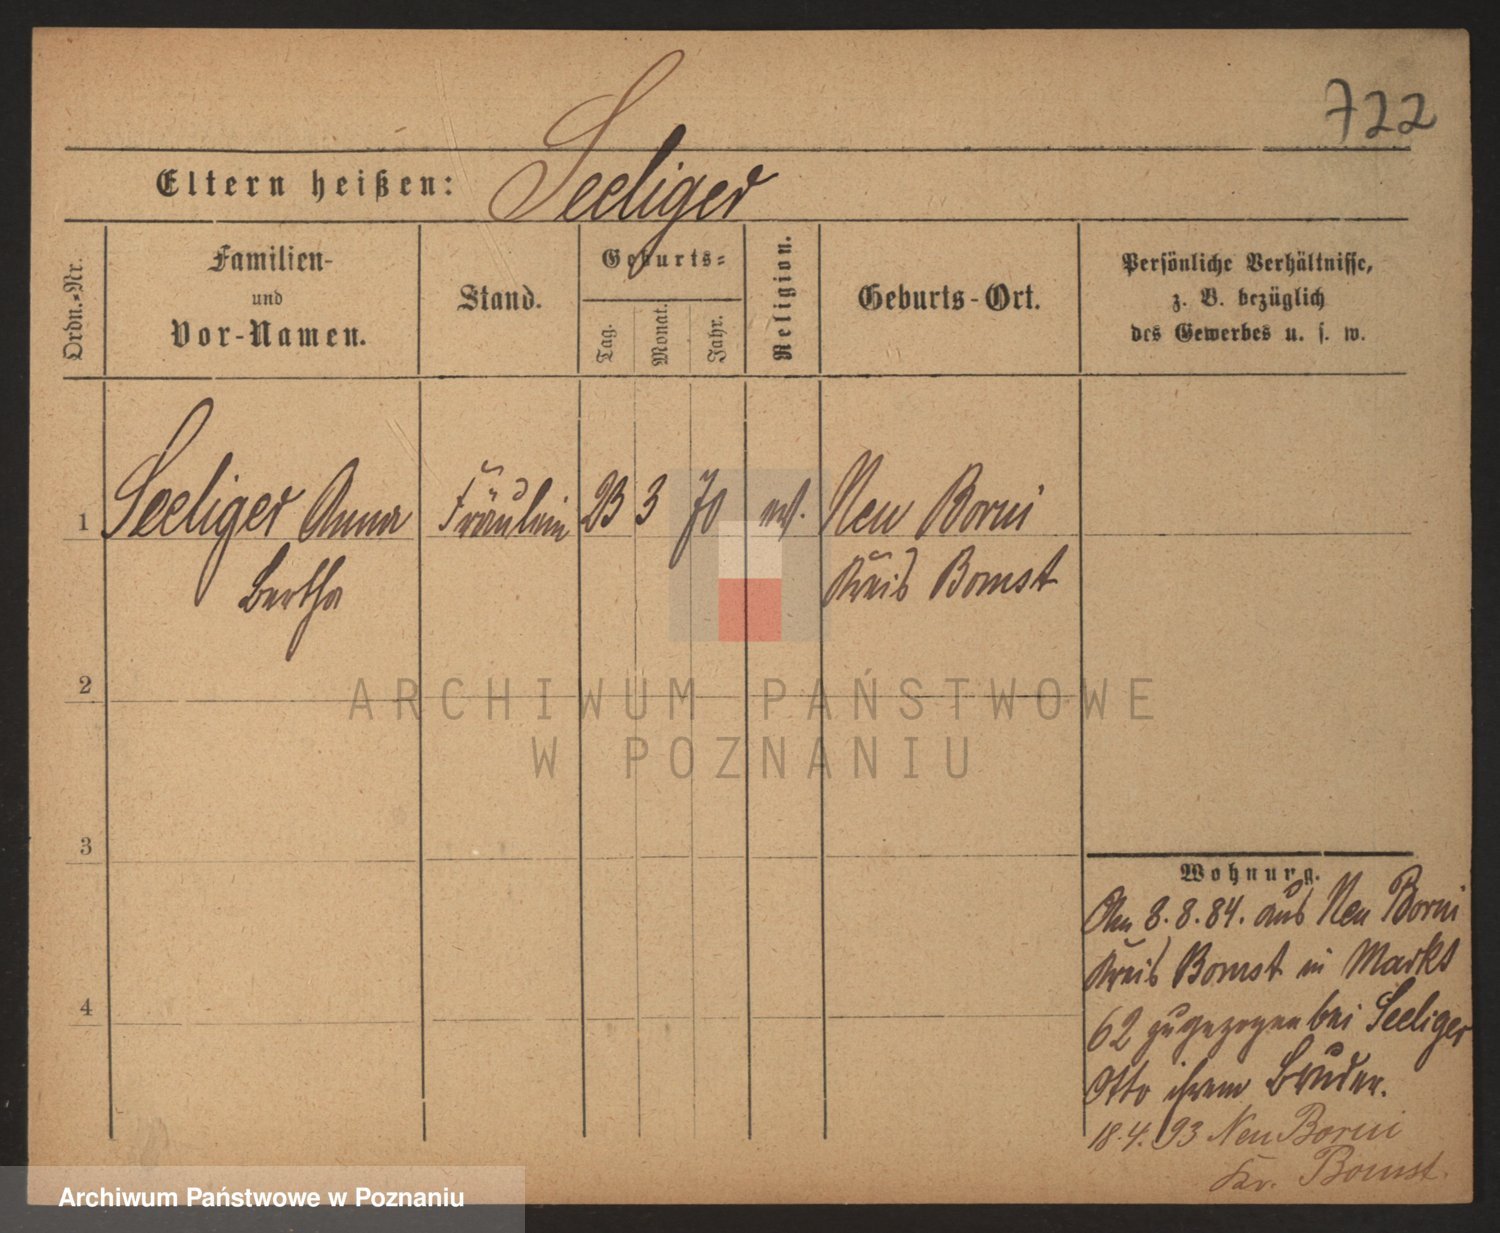 722
Eltern heißen: Seeliger
Ordn.-Nr.
Familien-
und
Vor-Namen.
Stand.
Geburts-
Tag.
Monat.
Jahr.
Religion.
Geburts-Ort.
Persönliche Verhältnisse,
z. B. bezüglich
des Gewerbes u. s. w.
1 Seeliger Anna Fräulein 23 3 70 Neu Borui
Bertha Kreis Bomst
2
ARCHIWUM PAŃSTWOWE
W POZNANIU
3
4
Wohnung.
Am 8.8.84. aus Neu Borui
Kreis Bomst in Markt
62 zugezogen bei Seeliger
Otto ihrem Bruder.
18.4.93 Neu Borui
Kr. Bomst.
Archiwum Państwowe w Poznaniu